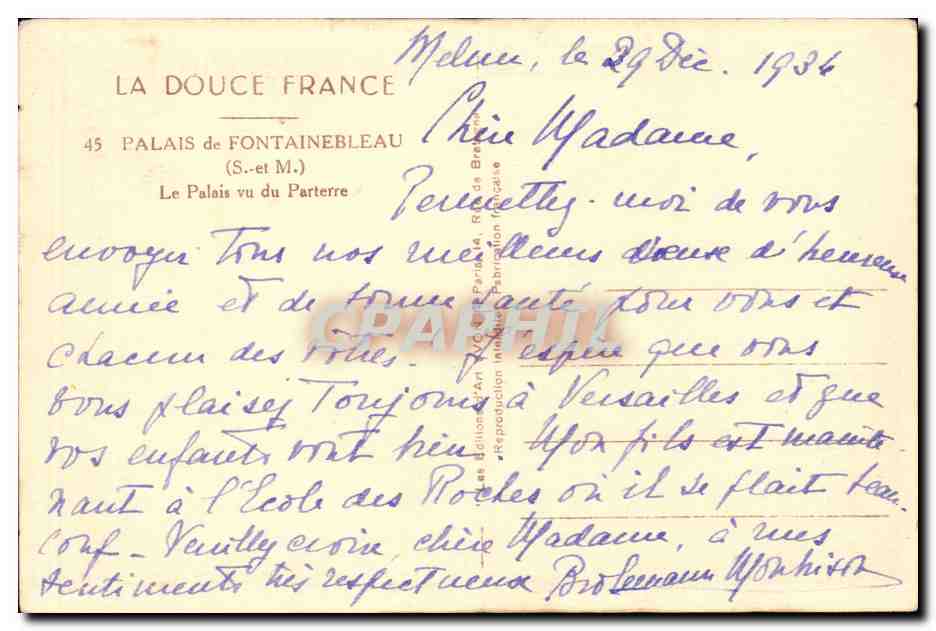 Melun, le 29 Déc. 1934
LA DOUCE FRANCE
45 PALAIS de FONTAINEBLEAU
(S.-et M.)
Le Palais vu du Parterre
Chère Madame,
Permettez-moi de vous
envoyer tous nos meilleurs vœux d'heureuse
année et de bonne santé pour vous et
chacun des vôtres. J'espère que vous
vous plaisez toujours à Versailles et que
vos enfants vont bien. Mon fils est mainte
nant à l'Ecole des Roches où il se plait beau-
coup - Veuillez croire, chère Madame, à mes
sentiments très respectueux Brölemann Montrison
Les Editions d'Art YVON Paris, Rue de Bretagne
Reproduction interdite Fabrication française
CPAPHIL